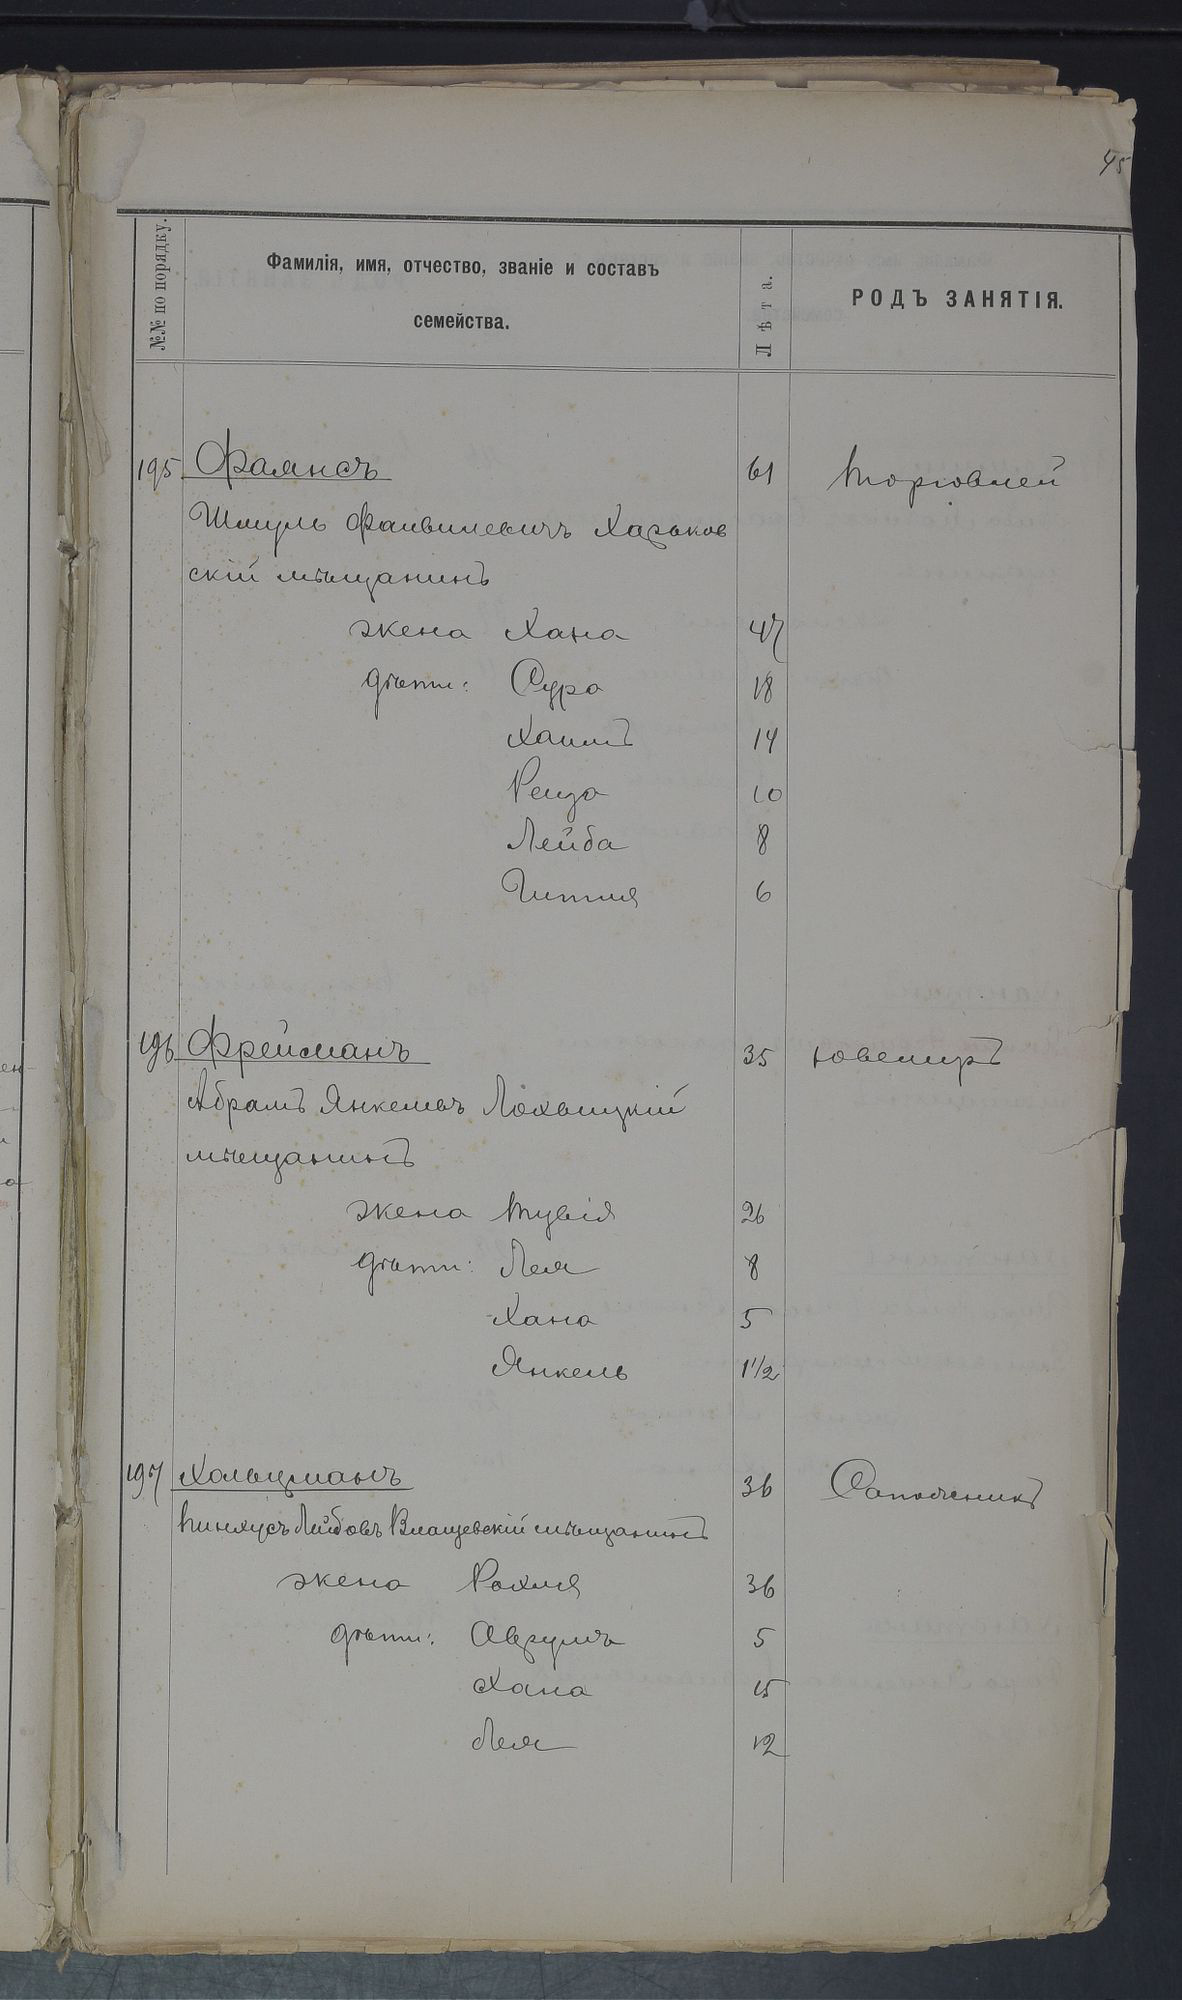 45
№№ по порядку.
Фамилія, имя, отчество, званіе и составъ
семейства.
Лѣта.
РОДЪ ЗАНЯТІЯ.
195 Фаянсъ 61 Торговлей
Шмуль Файвилевичъ Харьков
скій мѣщанинъ
жена Хана 47
дѣти: Сура 18
Хаимъ 14
Рейза 10
Лейба 8
Гитля 6
196 Фрейманъ 35 Ювелиръ
Абрамъ Янкелевъ Лохвицкій
мѣщанинъ
жена Тувія 26
дѣти: Лея 8
Хана 5
Янкель 1 1/2
197 Хольцманъ 36 Сапожникъ
Пинхусъ Лейбовъ мѣщанинъ
жена Рохля 36
дѣти: Аврумъ 5
Хана 15
Лея 12